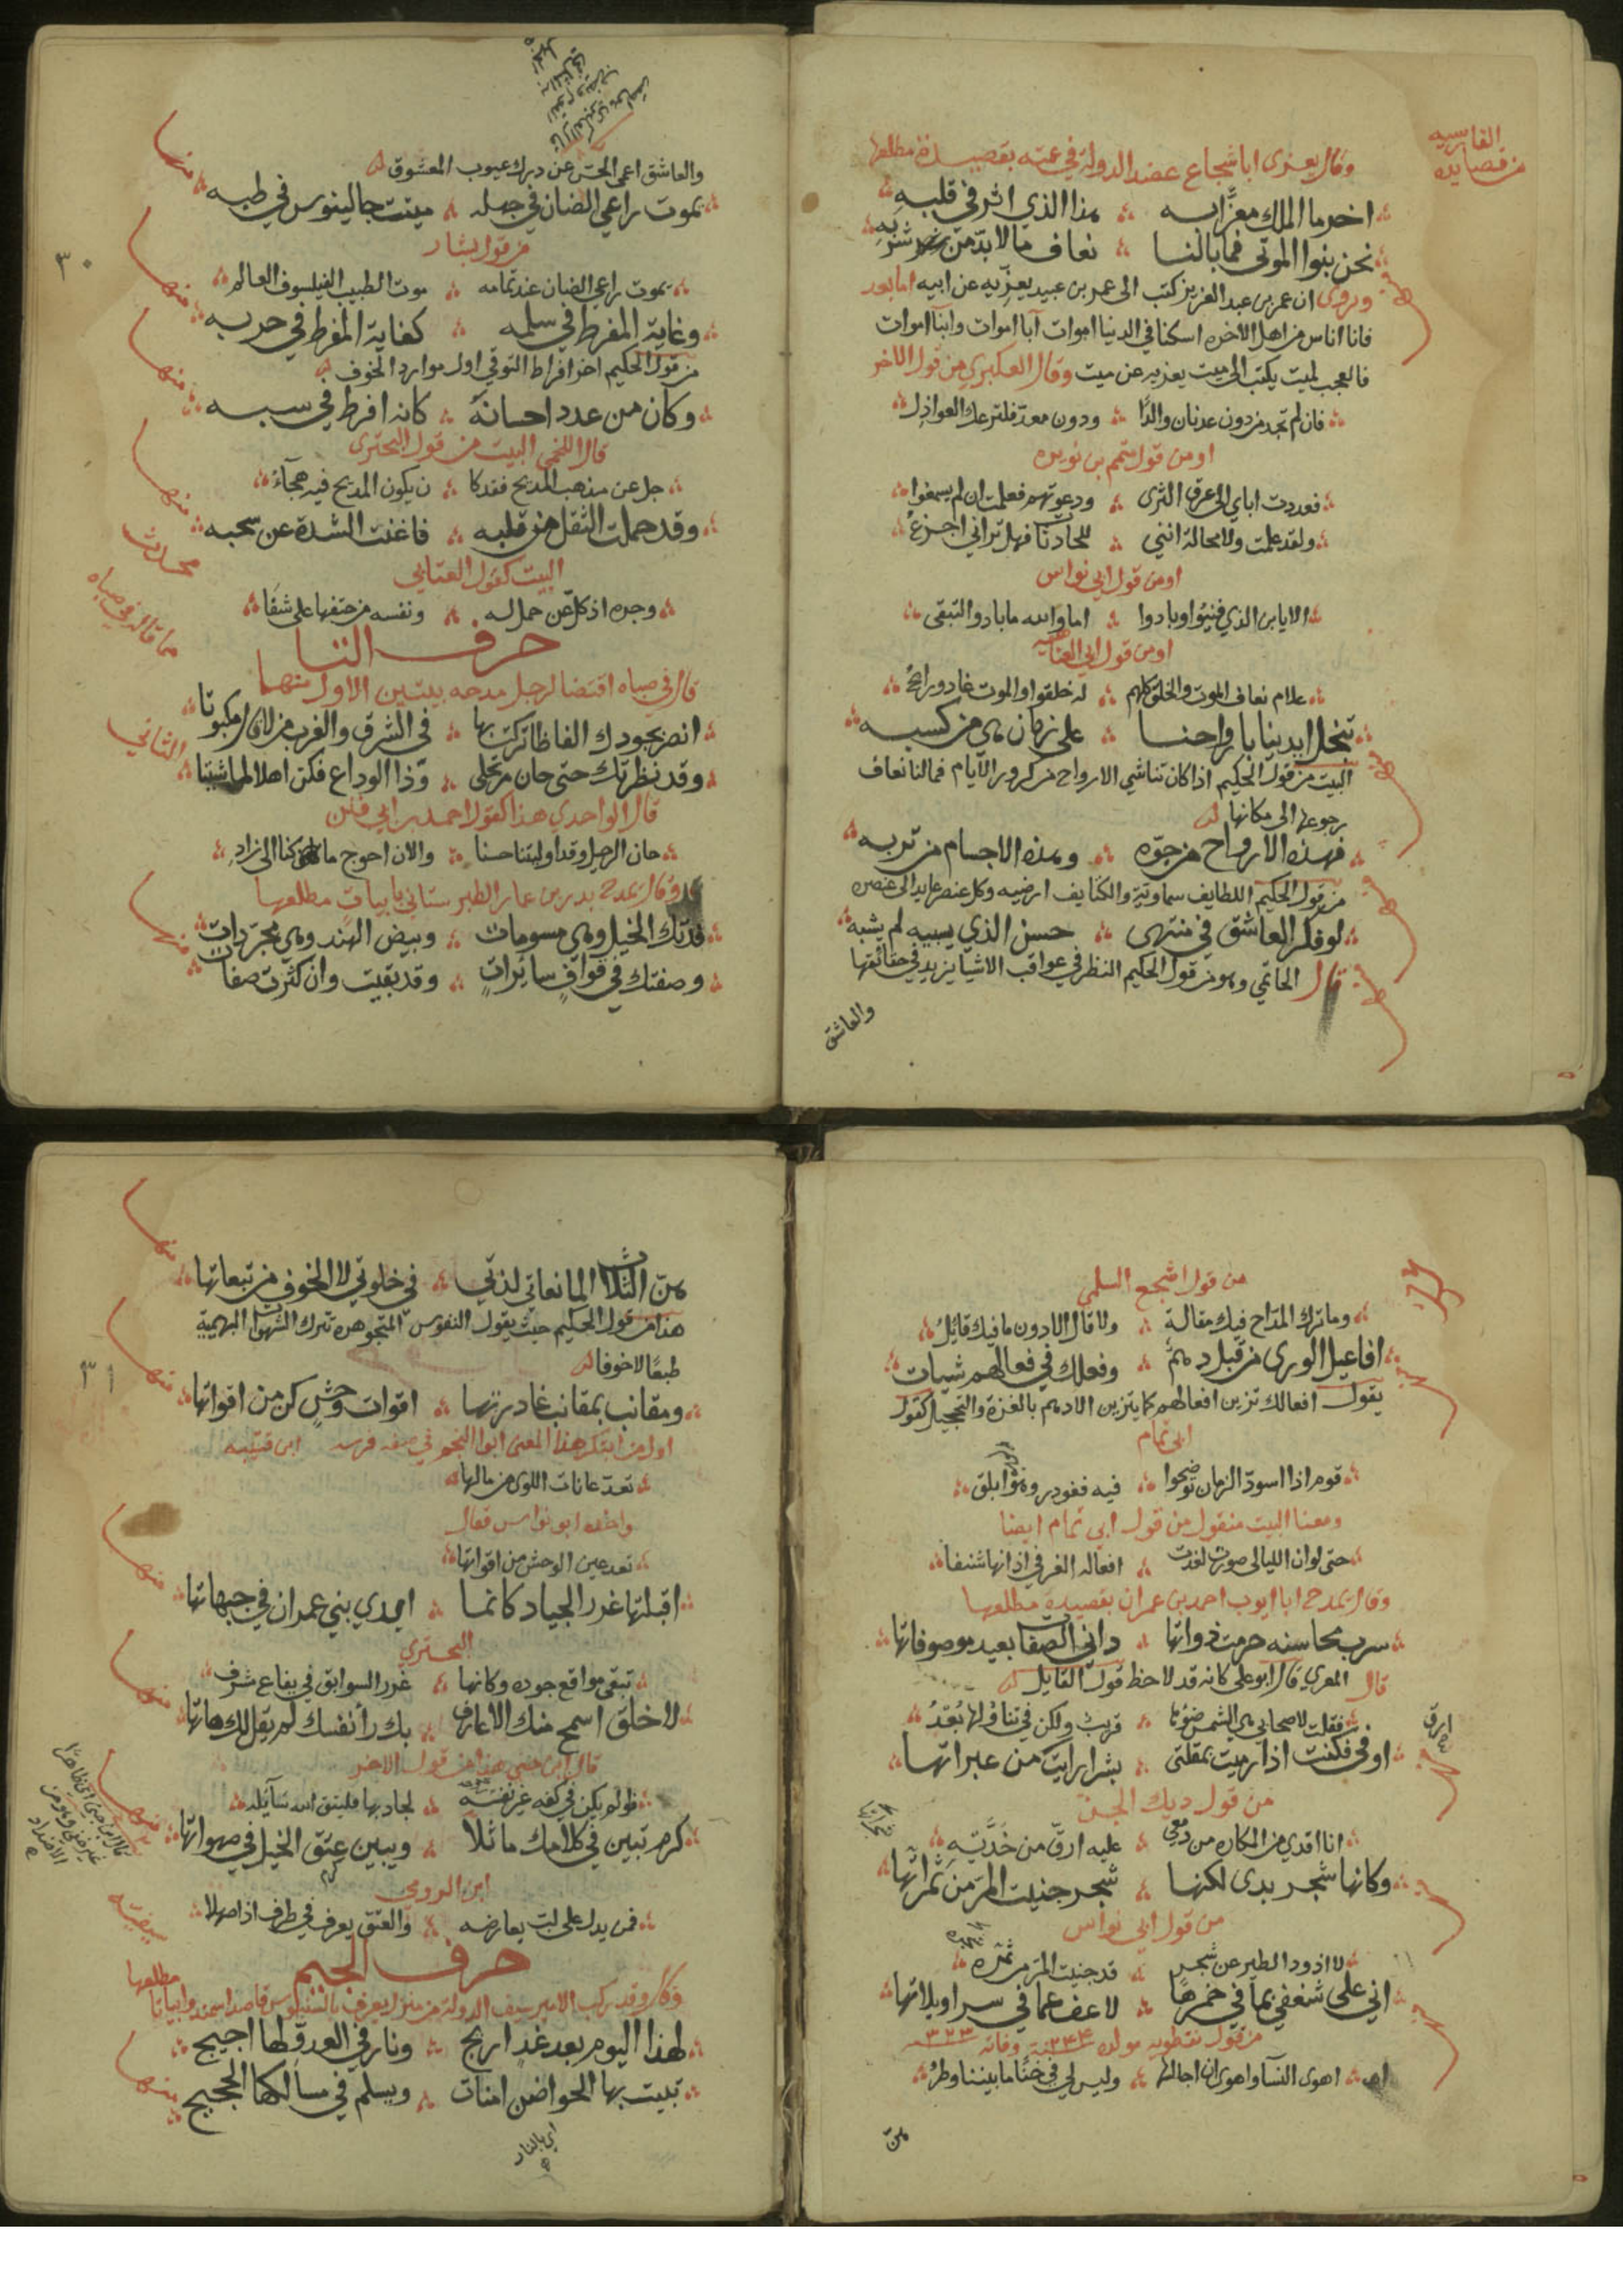 الفارسيه
من قصايده
وقال يعزى ابا شجاع عضد الدولة في عمته بقصيدة مطلعها
اخر ما الملك معزا به ∴ هذا الذي اثر في قلبه
نحن بنوا الموتى فما بالنا ∴ نعاف ما لا بد من شربه
منها
ويروى ان عمر بن عبد العزيز كتب الى عمر بن عبيد يعزيه عن ابيه اما بعد
فانا اناس من اهل الاخره اسكنا في الدنيا اموات آبا اموات وابنا اموات
فالعجب لميت يكتب الى ميت يعزيه عن ميت وقال العكبري من قول الاخر
فان لم تجد من دون عدنان والدًا ∴ ودون معد فلترعك العواذل
او من قول متمم بن نويره
فعددت اباي الى عرق الثرى ∴ ودعوتهم فعلمت ان لم يسمعوا
ولقد علمت ولا محالة انني ∴ للحادثات فهل تراني اجزع
او من قول ابي نواس
الا يا بن الذي فنيوا وبادوا ∴ اما والله ما بادوا لتبقى
او من قول ابي العتاهيه
علام نعاف الموت والخلق كلهم ∴ له خلقوا والموت غاد ورائح
تبخل ايدينا بارواحنا ∴ على زمان هي من كسبه
منها
البيت من قول الحكيم اذا كان تناشي الارواح من كرور الايام فما لنا نعاف
رجوعها الى مكانها
فهذه الارواح من جوه ∴ وهذه الاجسام من تربه
منها
من قول الحكيم اللطايف سماويّة والكثايف ارضيه وكل عنصر عايد الى عنصره
لو فكر العاشق في منتهى ∴ حسن الذي يسبيه لم يسبه
منها
قال الحاتمي وهو من قول الحكيم النظر في عواقب الاشيا يزيد في حقائقها
والعاشق
٣٠
والعاشق اعمى الحس عن درك عيوب المعشوق
يموت راعي الضان في جهله ∴ ميتت جالينوس في طبه
منها
من قول بشار
يموت راعي الضان عند تمامه ∴ موت الطبيب الفيلسوف العالم
وغاية المفرط في سلمه ∴ كغاية المفرط في حربه
منها
من قول الحكيم اخر افراط التوقي اول موارد الخوف
وكان من عدد احسانه ∴ كانه افرط في سبه
منها
قال اللخمي البيت من قول البحترى
جل عن مذهب المديح فقد كا ∴ ن يكون المديح فيه هجآء
وقد حملت الثقل من قلبه ∴ فاغنت الشدة عن سحبه
منها
البيت كقول العتابي
وجره اذ كل عن حمله ∴ ونفسه من حتفها على شفا
حرف التا
مما قاله في صباه
قال في صباه اقتضا لرجل مدحه بيتين الاول منهما
انصر بجودك الفاظا تركت بها ∴ في الشرق والغرب من لاقاك مكبوتا
الثاني
وقد نظرتك حتى حان مرتحلى ∴ وذا الوداع فكن اهلا لما شيتا
قال الواحدي هذا كقول احمد بن ابي فنن
حان الرحيل وقد اوليتنا حسنا ∴ والان احوج ما كنا الى زاد
وقال يمدح بدر بن عمار الطبرستاني بابيات مطلعها
فدتك الخيل وهي مسومات ∴ وبيض الهند وهي مجردات
منها
وصفتك في قوافٍ سائراتٍ ∴ وقد بقيت وان كثرت صفات
من قول اشجع السلمي
وما ترك المداح فيك مقالة ∴ ولا قال الا دون ما فيك قائل
افاعيل الورى من قبل دهم ∴ وفعلك في فعالهم شيات
منها
يقول افعالك تزين افعالهم كما يتزين الادهم بالغرة والتحجيل كقول
ابي تمام
قوم اذا اسود الزمان توضحوا ∴ فيه فغودر وهو ابلق
ومعنا البيت منقول من قول ابي تمام ايضا
حتى لو ان الليالي صورت لغدت ∴ افعاله الغر في اذانها شنفا
وقال يمدح ابا ايوب احمد بن عمران بقصيدة مطلعها
سرب محاسنه حرمت ذواتها ∴ داني الصفات بعيد موصوفاتها
قال المعري قال ابو على كانه قد لاحظ قول القايل
فقلت لاصحابي هي الشمس ضوءها ∴ قريب ولكن في تناولها بعد
اوفى فكنت اذا رميت بمقلتى ∴ بشرا رايت ارق من عبراتها
من قول ديك الجن
انا افدي من المكاره من دمعي ∴ عليه ارق من خديه
وكانها شجر بدى لكنها ∴ شجر جنيت المر من ثمراتها
من قول ابي نواس
لا اذود الطير عن شجر ∴ قد جنيت المر من ثمره
اني على شغفي بما في خمرها ∴ لاعف عما في سراويلاتها
من قول نفطويه مولده ٢٤٤ وفاته ٣٢٣
اهوى النسآ واهوى ان اجالسها ∴ وليس لي في خنا ما بيننا وطر
هن
٣١
هن الثلاث المانعاتي لذتي ∴ في خلوتي لا الخوف من تبعاتها
منها
هذا من قول الحكيم حيث يقول النفوس المتجوهره تترك الشهوات البهيمية
طبعًا لا خوفا
ومقانب بمقانب غادرتها ∴ اقوات وحش كن من اقواتها
منها
اول من ابتكر هذا المعنى ابو النجم في صفة فرسه ابن قتيبه
تعد عانات اللوى من مالها
واخذه ابو نواس فقال
تعد عين الوحش من اقواتها
اقبلتها غرر الجياد كانما ∴ ايدي بني عمران في جبهاتها
منها
البحتري
تبقى مواقع جوده وكانها ∴ غرر السوابق في يفاع شرف
لا خلق اسمح منك الا عارف ∴ بك رأ نفسك لم يقل لك هاتها
منها
قال ابن جني هذا من قول الاخر
ولو لم يكن في كفه غير نفسه ∴ لجاد بها فليتق الله سآئله
كرم تبين في كلامك ماثلا ∴ ويبين عتق الخيل في صهواتها
منها
ابن الرومي
فمن يدل على لب يعارضه ∴ والعتق يعرف في طرف اذا صهلا
حرف الجيم
سيفيه
وقال وقد ركب الامير سيف الدولة من منزل يعرف بالسنبوس قاصدا سمندو ابياتا مطلعها
لهذا اليوم بعد غدٍ اريج ∴ ونار في العدو لها اجيج
تبيت بها الحواضن امنات ∴ ويسلم في مسالكها الحجيج
منها
اي بالنار